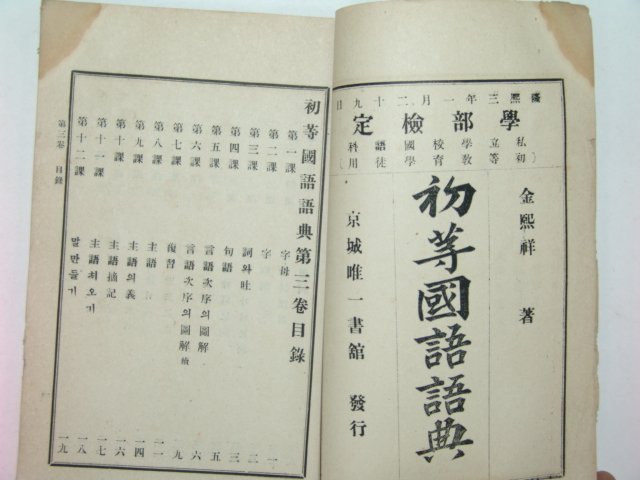 隆熙三年一月二十九日
學部檢定
私立學校國語科
初等敎育學徒用
金熙祥 著
初等國語語典
京城唯一書舘 發行
初等國語語典第三卷目錄
第一課 字母 一
第二課 字 二
第三課 詞와吐 三
第四課 句語 五
第五課 言語次序의圖解 六
第六課 言語次序의圖解 續 九
第七課 復習 一一
第八課 主語 一四
第九課 主語의義 一六
第十課 主語摘記 一七
第十一課 主語처오기 一八
第十二課 말만들기 一九
第三卷 目錄